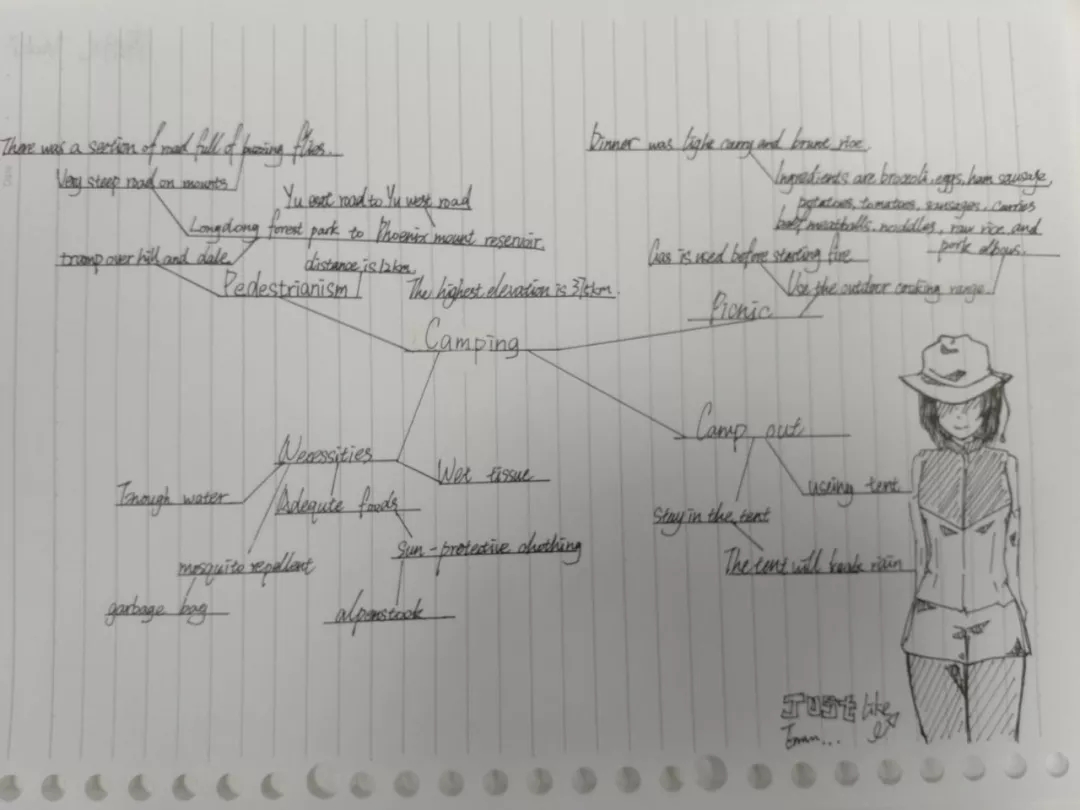 There was a section of road full of buzzing flies.
Very steep road on mounts
Yu east road to Yu west road
Longdong forest park to Phoenix mount reservoir.
tramp over hill and dale
distance is 12km.
Pedestrianism
The highest elevation is 375km.
Dinner was light curry and brune rice.
Ingredients are broccoli, eggs, ham sausage,
potatoes, tomatoes, sausages, carries
beef meatballs, noddles, raw rice, and
pork elbows.
Gas is used before starting fire
Use the outdoor cooking range.
Picnic
Camping
Camp out
useing tent
stay in the tent
The tent will rain
Necessities
Wet tissue
water
Adequte foods
sun-protective clothing
mosquito repellent
garbage bag
alpenstock
JUST like